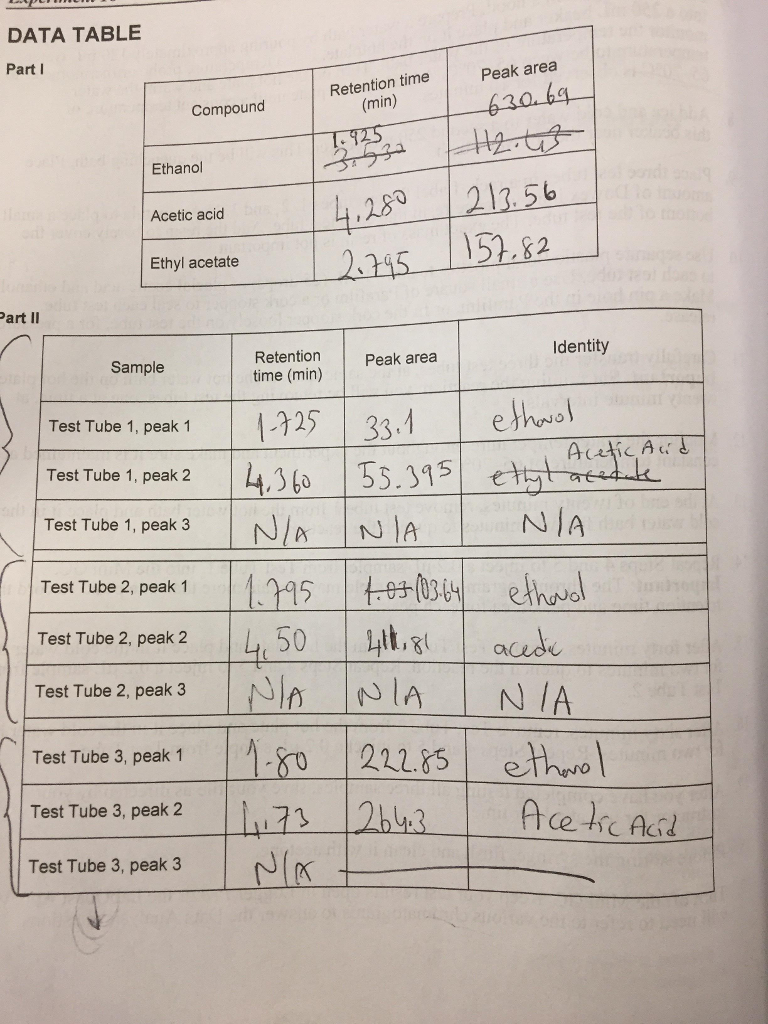 DATA TABLE
Part I
Compound Retention time (min) Peak area
630.69
1.925
Ethanol 3.530 112.43
Acetic acid 4.280 213.56
Ethyl acetate 2.795 157.82
Part II
Sample Retention time (min) Peak area Identity
Test Tube 1, peak 1 1.725 33.1 ethanol
Acetic Acid
Test Tube 1, peak 2 4.360 55.395 ethyl acetate
Test Tube 1, peak 3 N/A N/A N/A
Test Tube 2, peak 1 1.795 1.03 103.64 ethanol
Test Tube 2, peak 2 4.50 acedic
Test Tube 2, peak 3 N/A N/A N/A
Test Tube 3, peak 1 1.80 222.85 ethanol
Test Tube 3, peak 2 4.73 264.3 Acetic Acid
Test Tube 3, peak 3 N/A